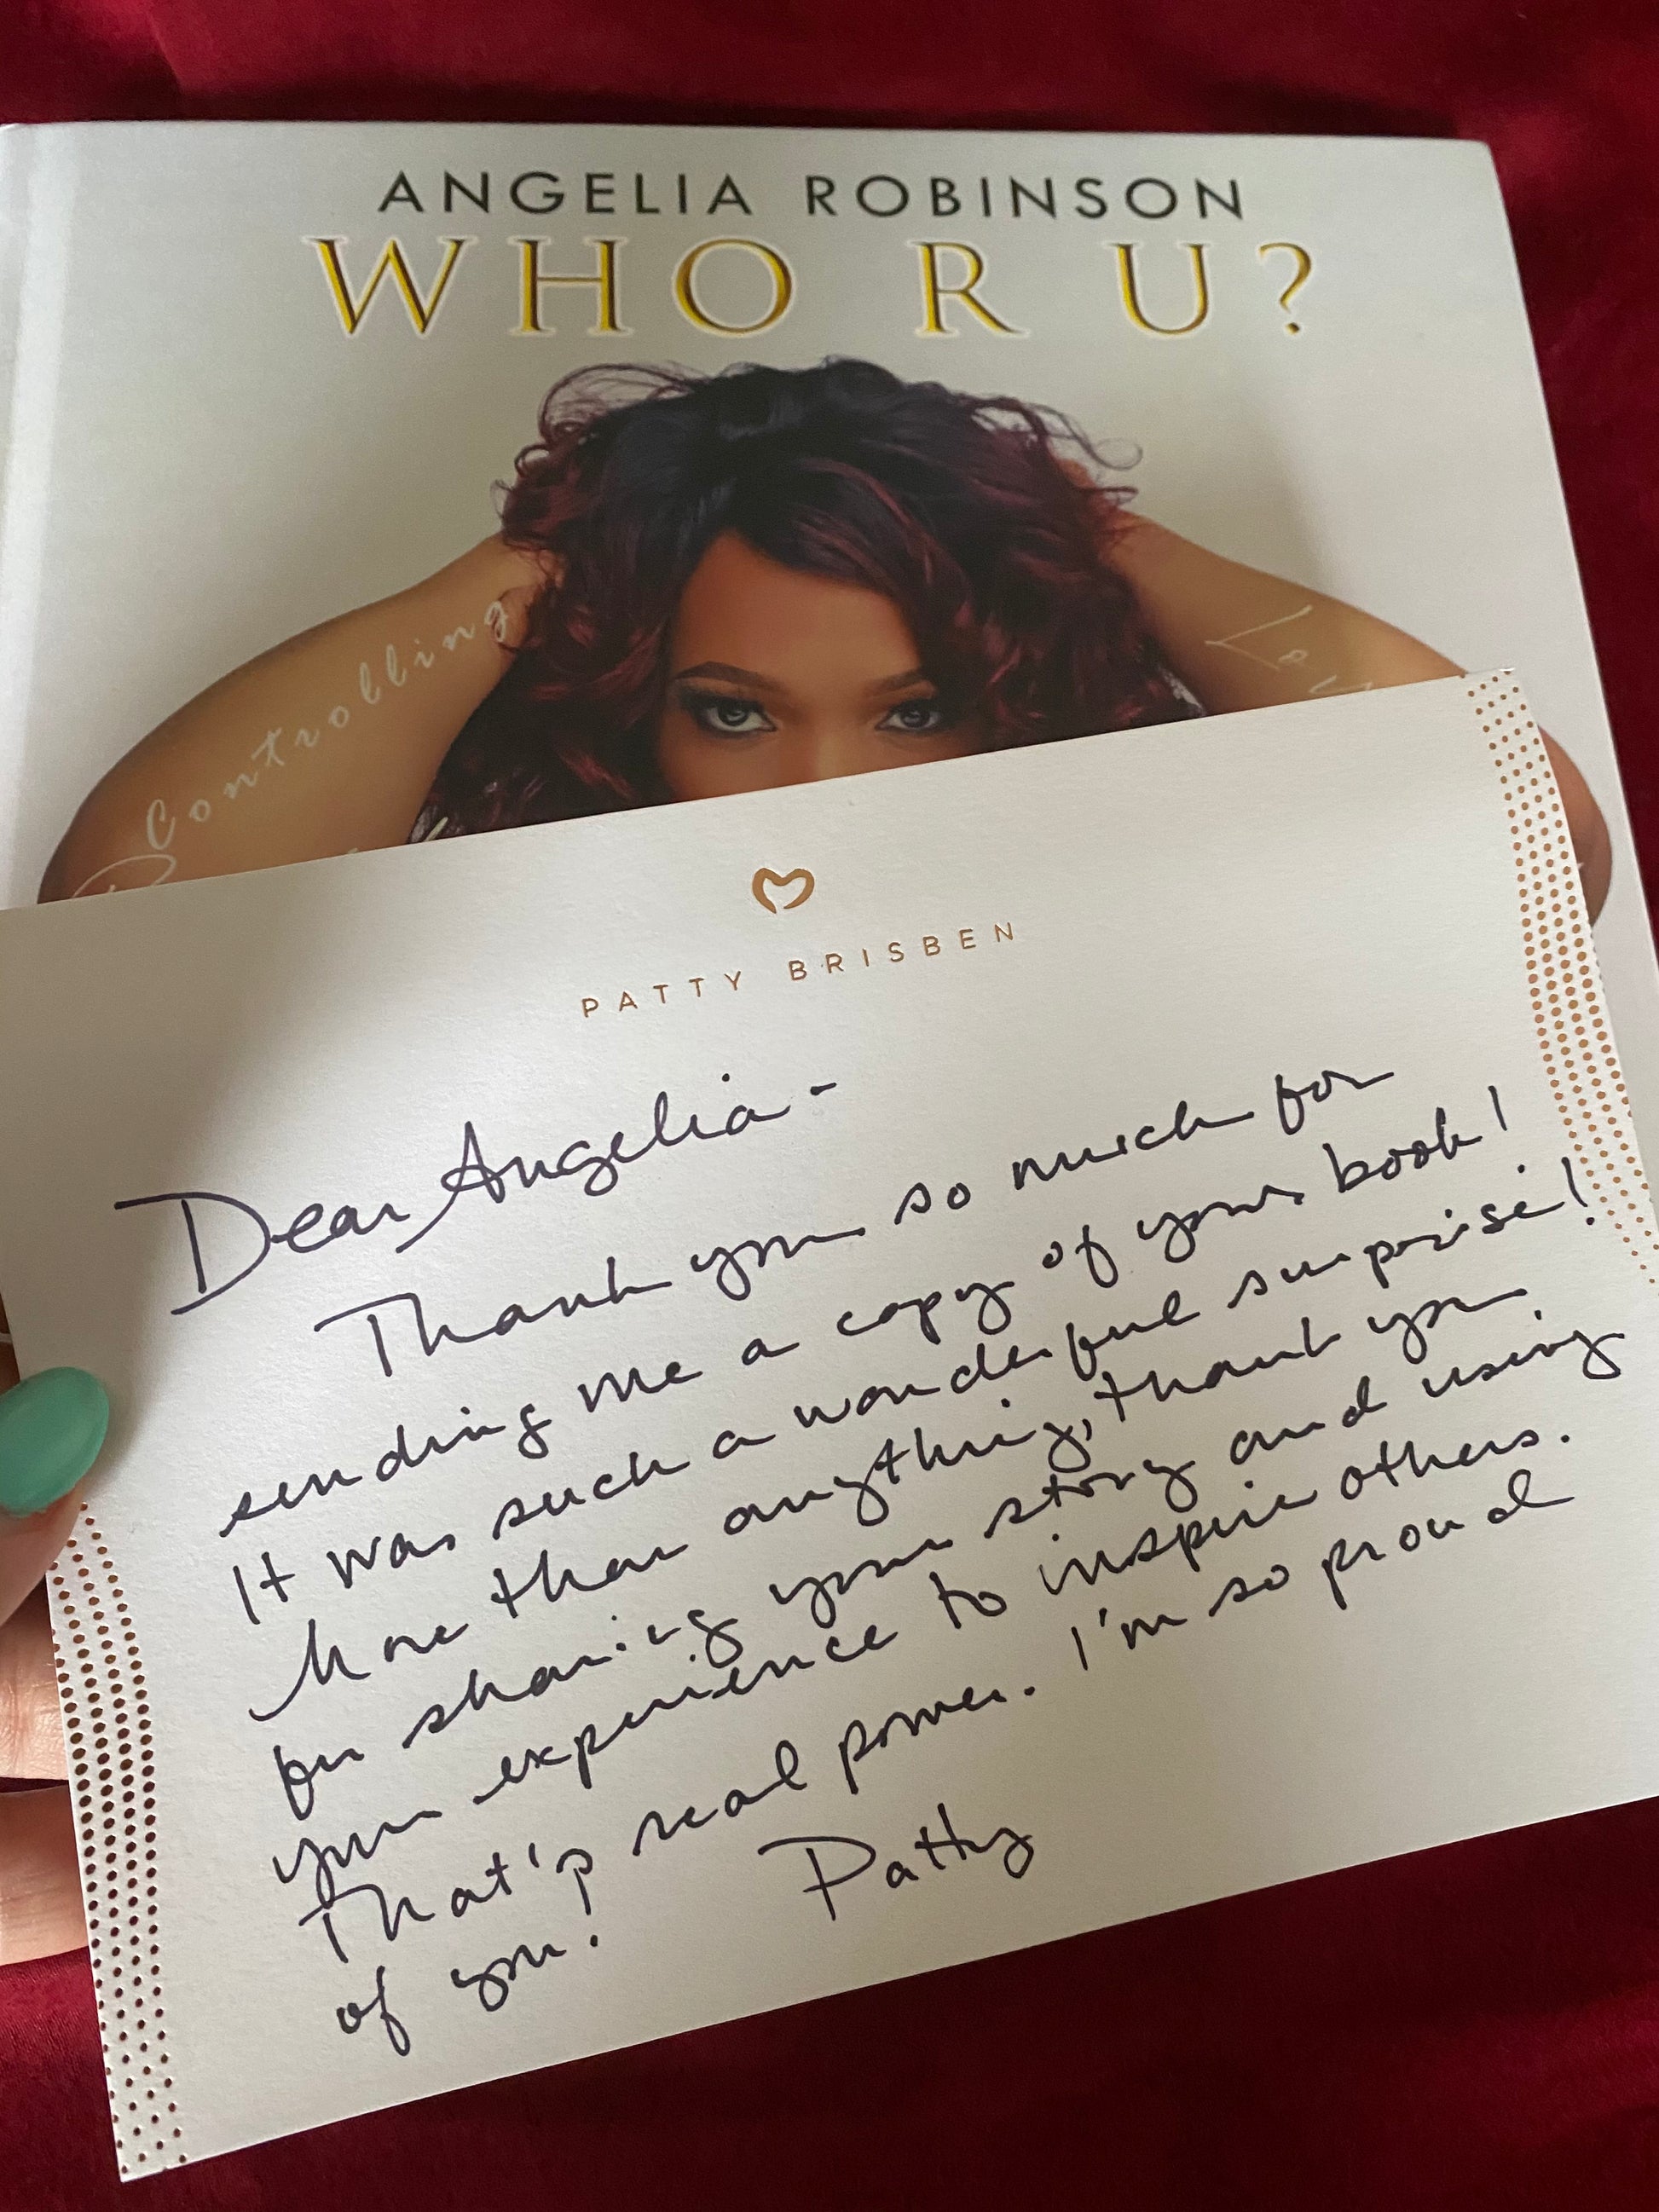 ANGELIA ROBINSON
WHO R U?
Controlling
PATTY BRISBEN
Dear Angelia -
Thank you so much for
sending me a copy of your book!
It was such a wonderful surprise!
More than anything, thank you
for sharing your story and using
your experience to inspire others.
That's real power. I'm so proud
of you! Patty